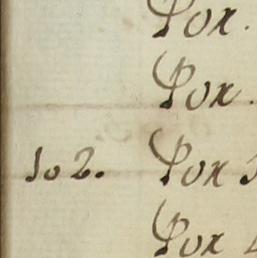 Pox.
Pox.
102. Pox
Pox